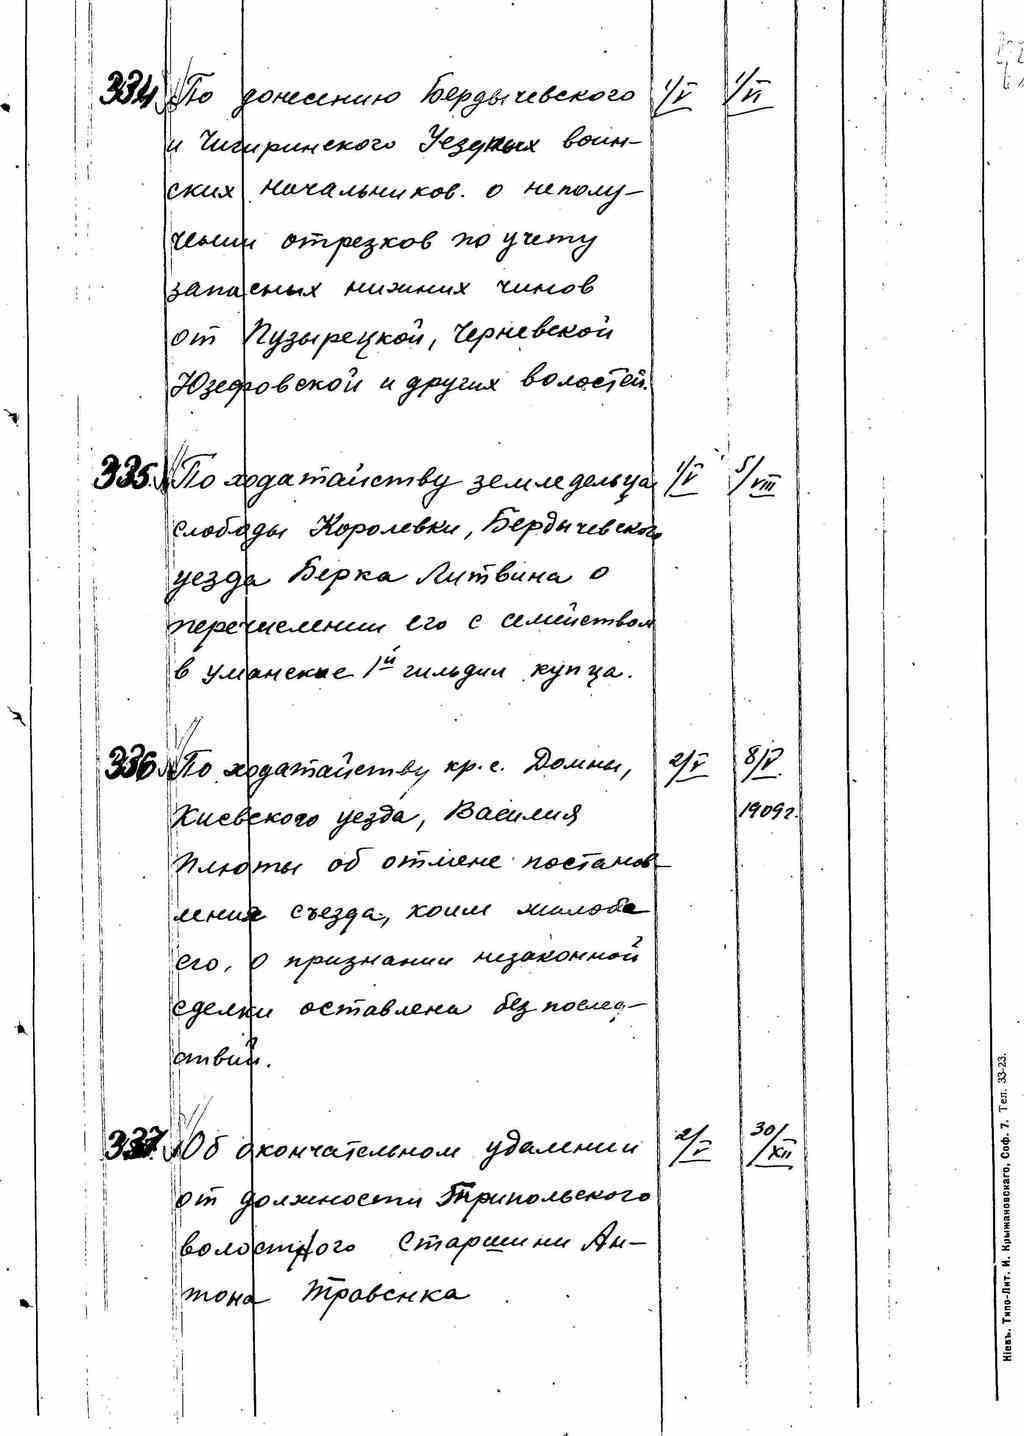 334 По донесению Бердычевского 1/V 1/VI
и Чигиринского Уездных воин-
ских начальников. о неполу-
чении отрезков по учету
запасных нижних чинов
от Пузырецкой, Черневской
Юзефовской и других волостей.
335. По ходатайству земледельца 1/V 5/VIII
слободы Королевки, Бердычевского
уезда Берка Литвина о
перечислении его с семейством
в уманские 1й гильдии купца.
336 По ходатайству кр. с. Домни, 2/V 8/V.
Киевского уезда, Василия 1909г.
Плюты об отмене постанов-
ления съезда, коим жалоба
его, о признании незаконной
сделки оставлена без послед-
ствий.
337. Об окончательном удалении 2/V 30/XII
от должности Трипольского
волостного Старшини Ан-
тона Травенка
Кіевъ. Типо-Лит. И. Крыжановскаго, Соф. 7. Тел. 33-23.